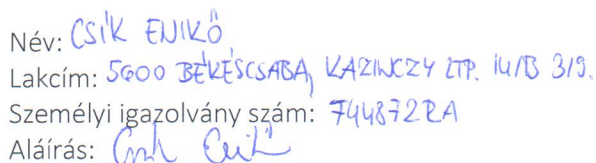 Név: CSÍK ENIKŐ
Lakcím: 5600 BÉKÉSCSABA, KAZINCZY LTP. 14/B 3/9.
Személyi igazolvány szám: 744872RA
Aláírás: Csík Enikő